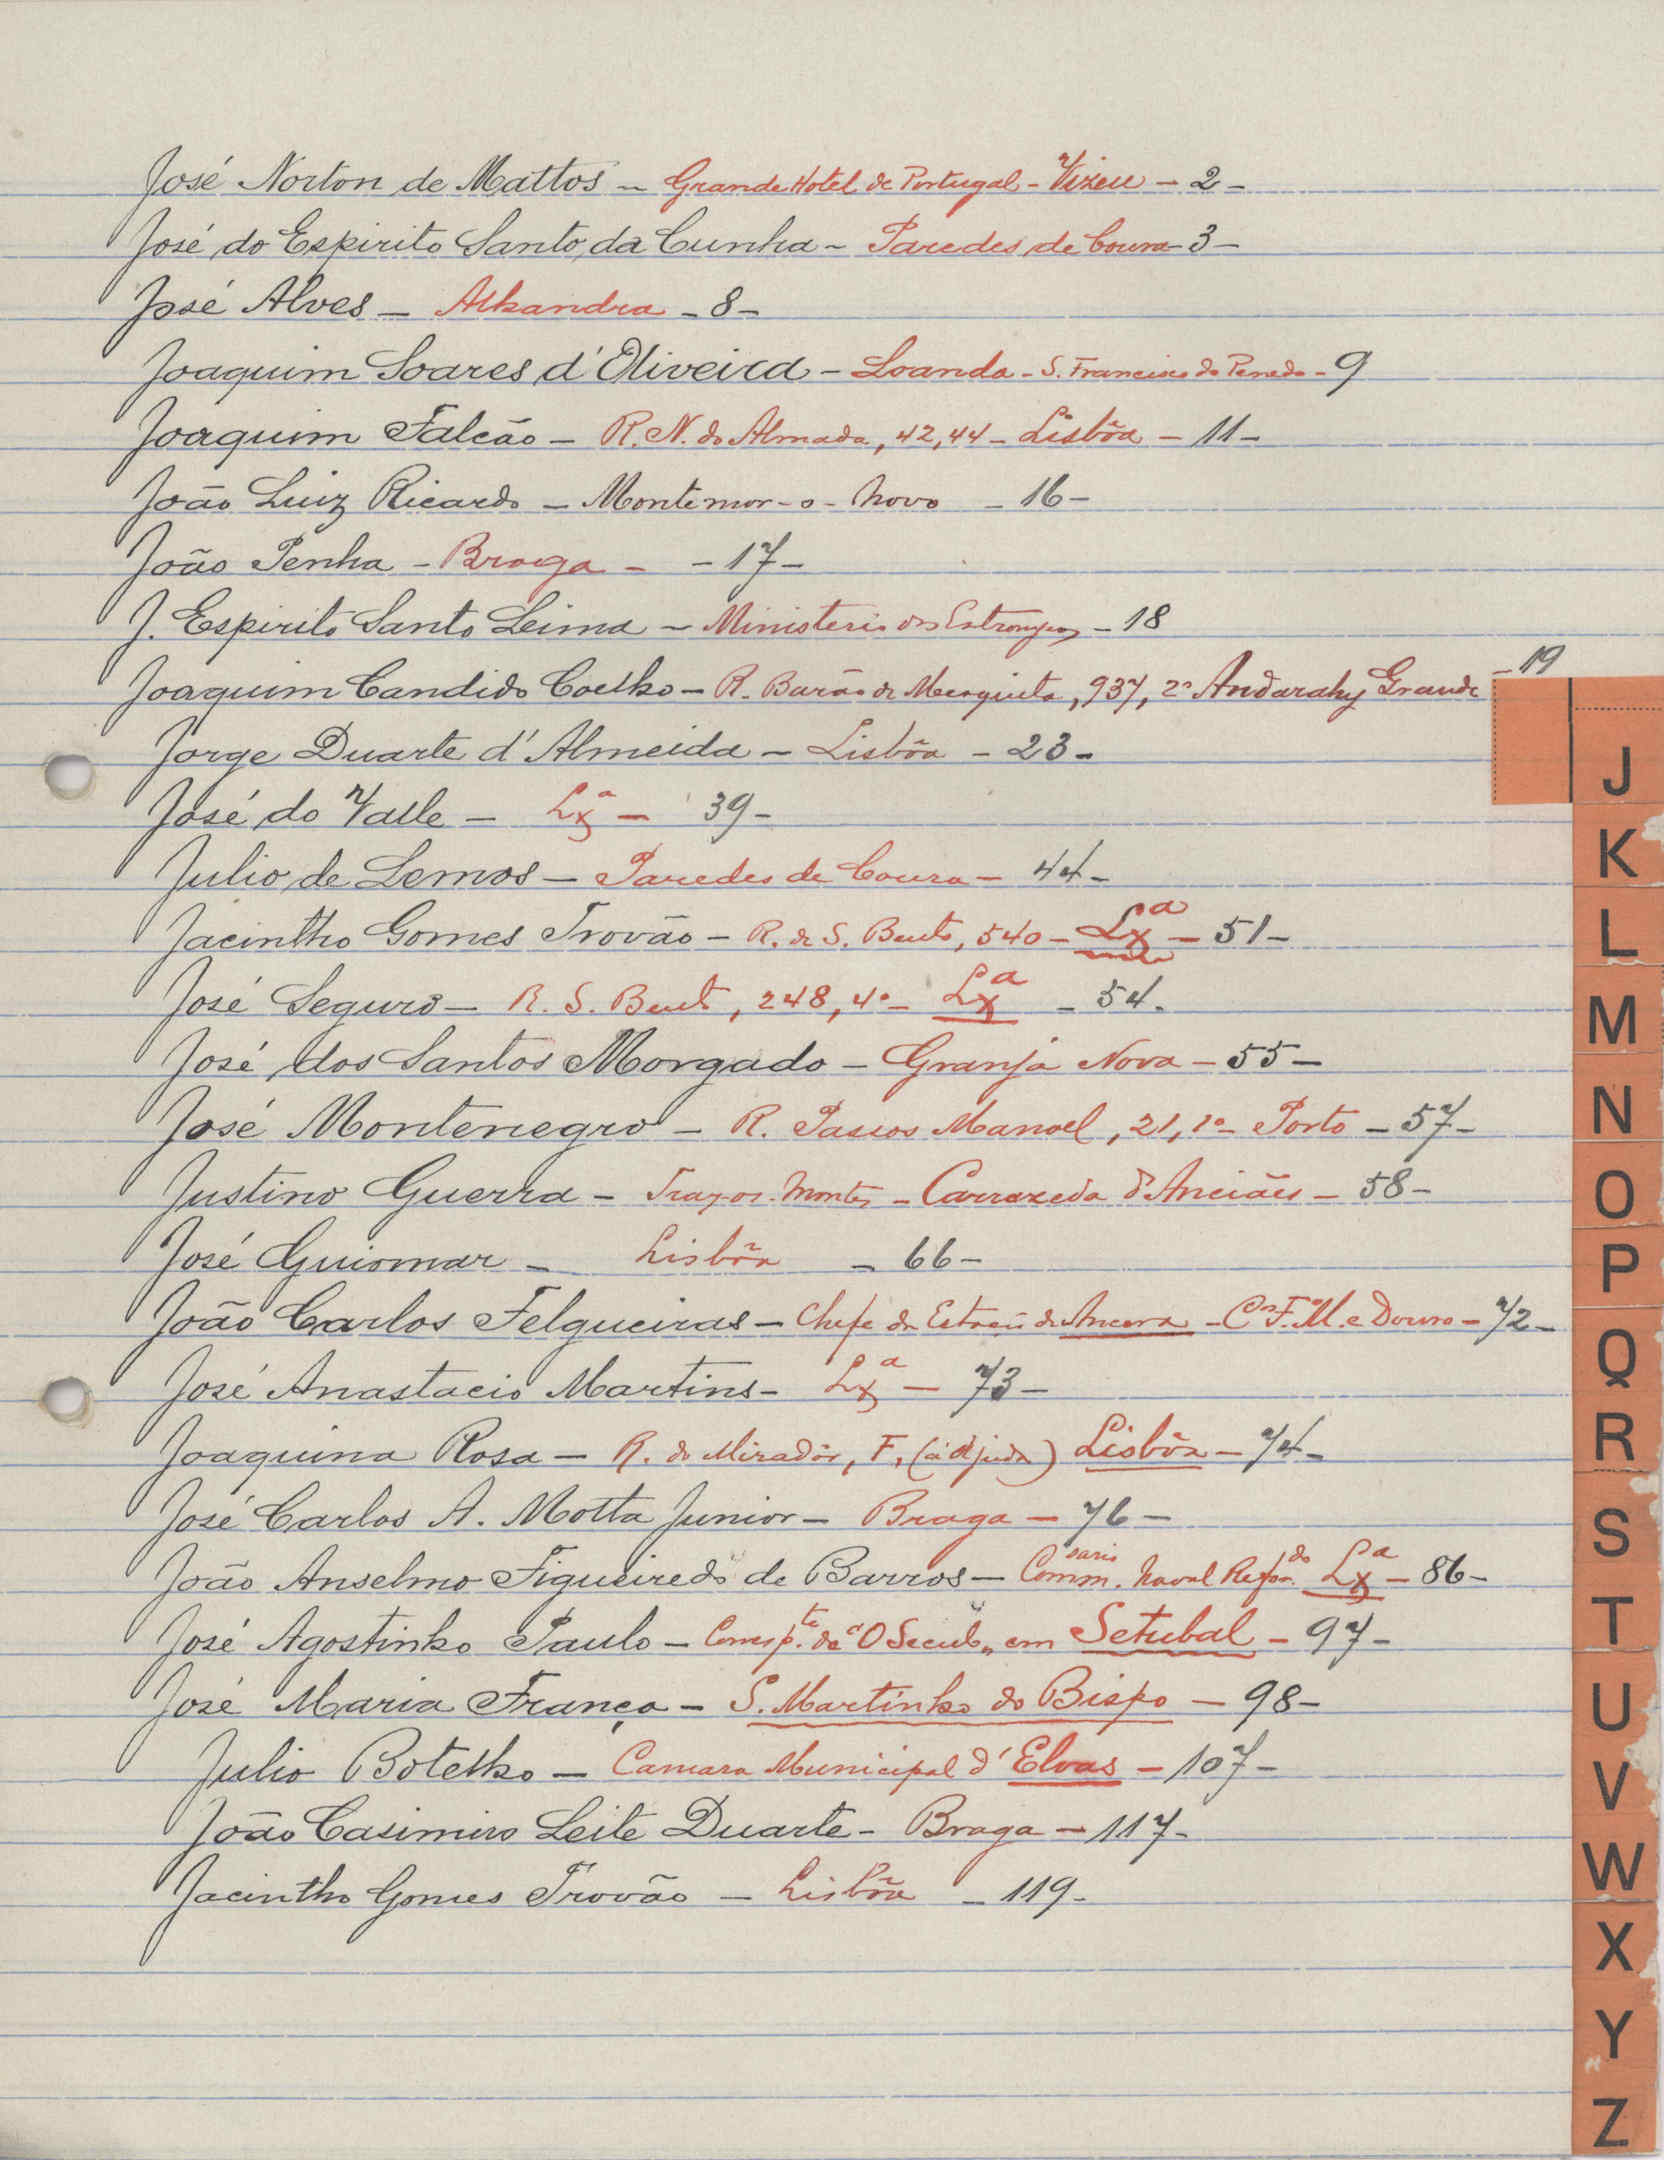 José Norton de Mattos - Grande Hotel de Portugal - Vizeu - 2 -
José do Espirito Santo da Cunha - Paredes de Coura - 3 -
José Alves - Alhandra - 8 -
Joaquim Soares d'Oliveira - Loanda - S. Francisco do Penedo - 9
Joaquim Falcão - R. N. do Almada, 42, 44 - Lisbôa - 11 -
João Luiz Ricardo - Montemor-o-Novo - 16 -
João Penha - Braga - - 17 -
J. Espirito Santo Leima - Ministerio dos Estrangeiros - 18
Joaquim Candido Coelho - R. Barão de Mesquita, 937, 2º Andarahy Grande - 19
Jorge Duarte d'Almeida - Lisbôa - 23 -
José do Valle - Lxª - 39 -
Julio de Lemos - Paredes de Coura - 44 -
Jacintho Gomes Trovão - R. de S. Bento, 540 - Lxª - 51 -
José Seguro - R. S. Bento, 248, 4º - Lxª - 54 -
José dos Santos Morgado - Granja Nova - 55 -
José Montenegro - R. Passos Manoel, 21, 1º - Porto - 57 -
Justino Guerra - Traz-os-Montes - Carrazeda d'Anciães - 58 -
José Guiomar - Lisbôa - 66 -
João Carlos Felgueiras - Chefe da Estação de Ancora - Cº F. M. e Douro - 72 -
José Anastacio Martins - Lxª - 73 -
Joaquina Rosa - R. do Miradôr, F, (á Ajuda) Lisbôa - 74 -
José Carlos A. Motta Junior - Braga - 76 -
João Anselmo Figueiredo de Barros - Comm.sario Naval Refor.do Lxª - 86 -
José Agostinho Paulo - Corresp.te do "O Seculo" em Setubal - 97 -
José Maria França - S. Martinho do Bispo - 98 -
Julio Botelho - Camara Municipal d'Elvas - 107 -
João Casimiro Leite Duarte - Braga - 117 -
Jacintho Gomes Trovão - Lisbôa - 119 -
J
K
L
M
N
O
P
Q
R
S
T
U
V
W
X
Y
Z